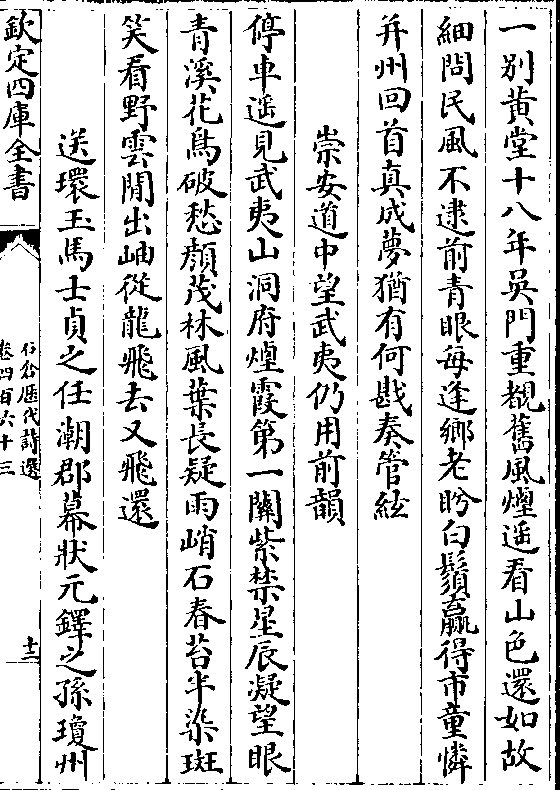 一別黄堂十八年吳門重覩舊風煙遥看山色還如故
細問民風不逮前青眼每逢鄉老盻白鬚贏得市童憐
并州回首真成夢猶有何戡奏管絃
崇安道中望武夷仍用前韻
停車遥見武夷山洞府煙霞第一關紫禁星辰凝望眼
青溪花鳥破愁顔茂林風葉長疑雨峭石春苔半染斑
笑看野雲閒出岫從龍飛去又飛還
送環玉馬士貞之任潮郡幕狀元鐸之孫瓊州
欽定四庫全書
石倉歷代詩選
卷四百六十三
十二